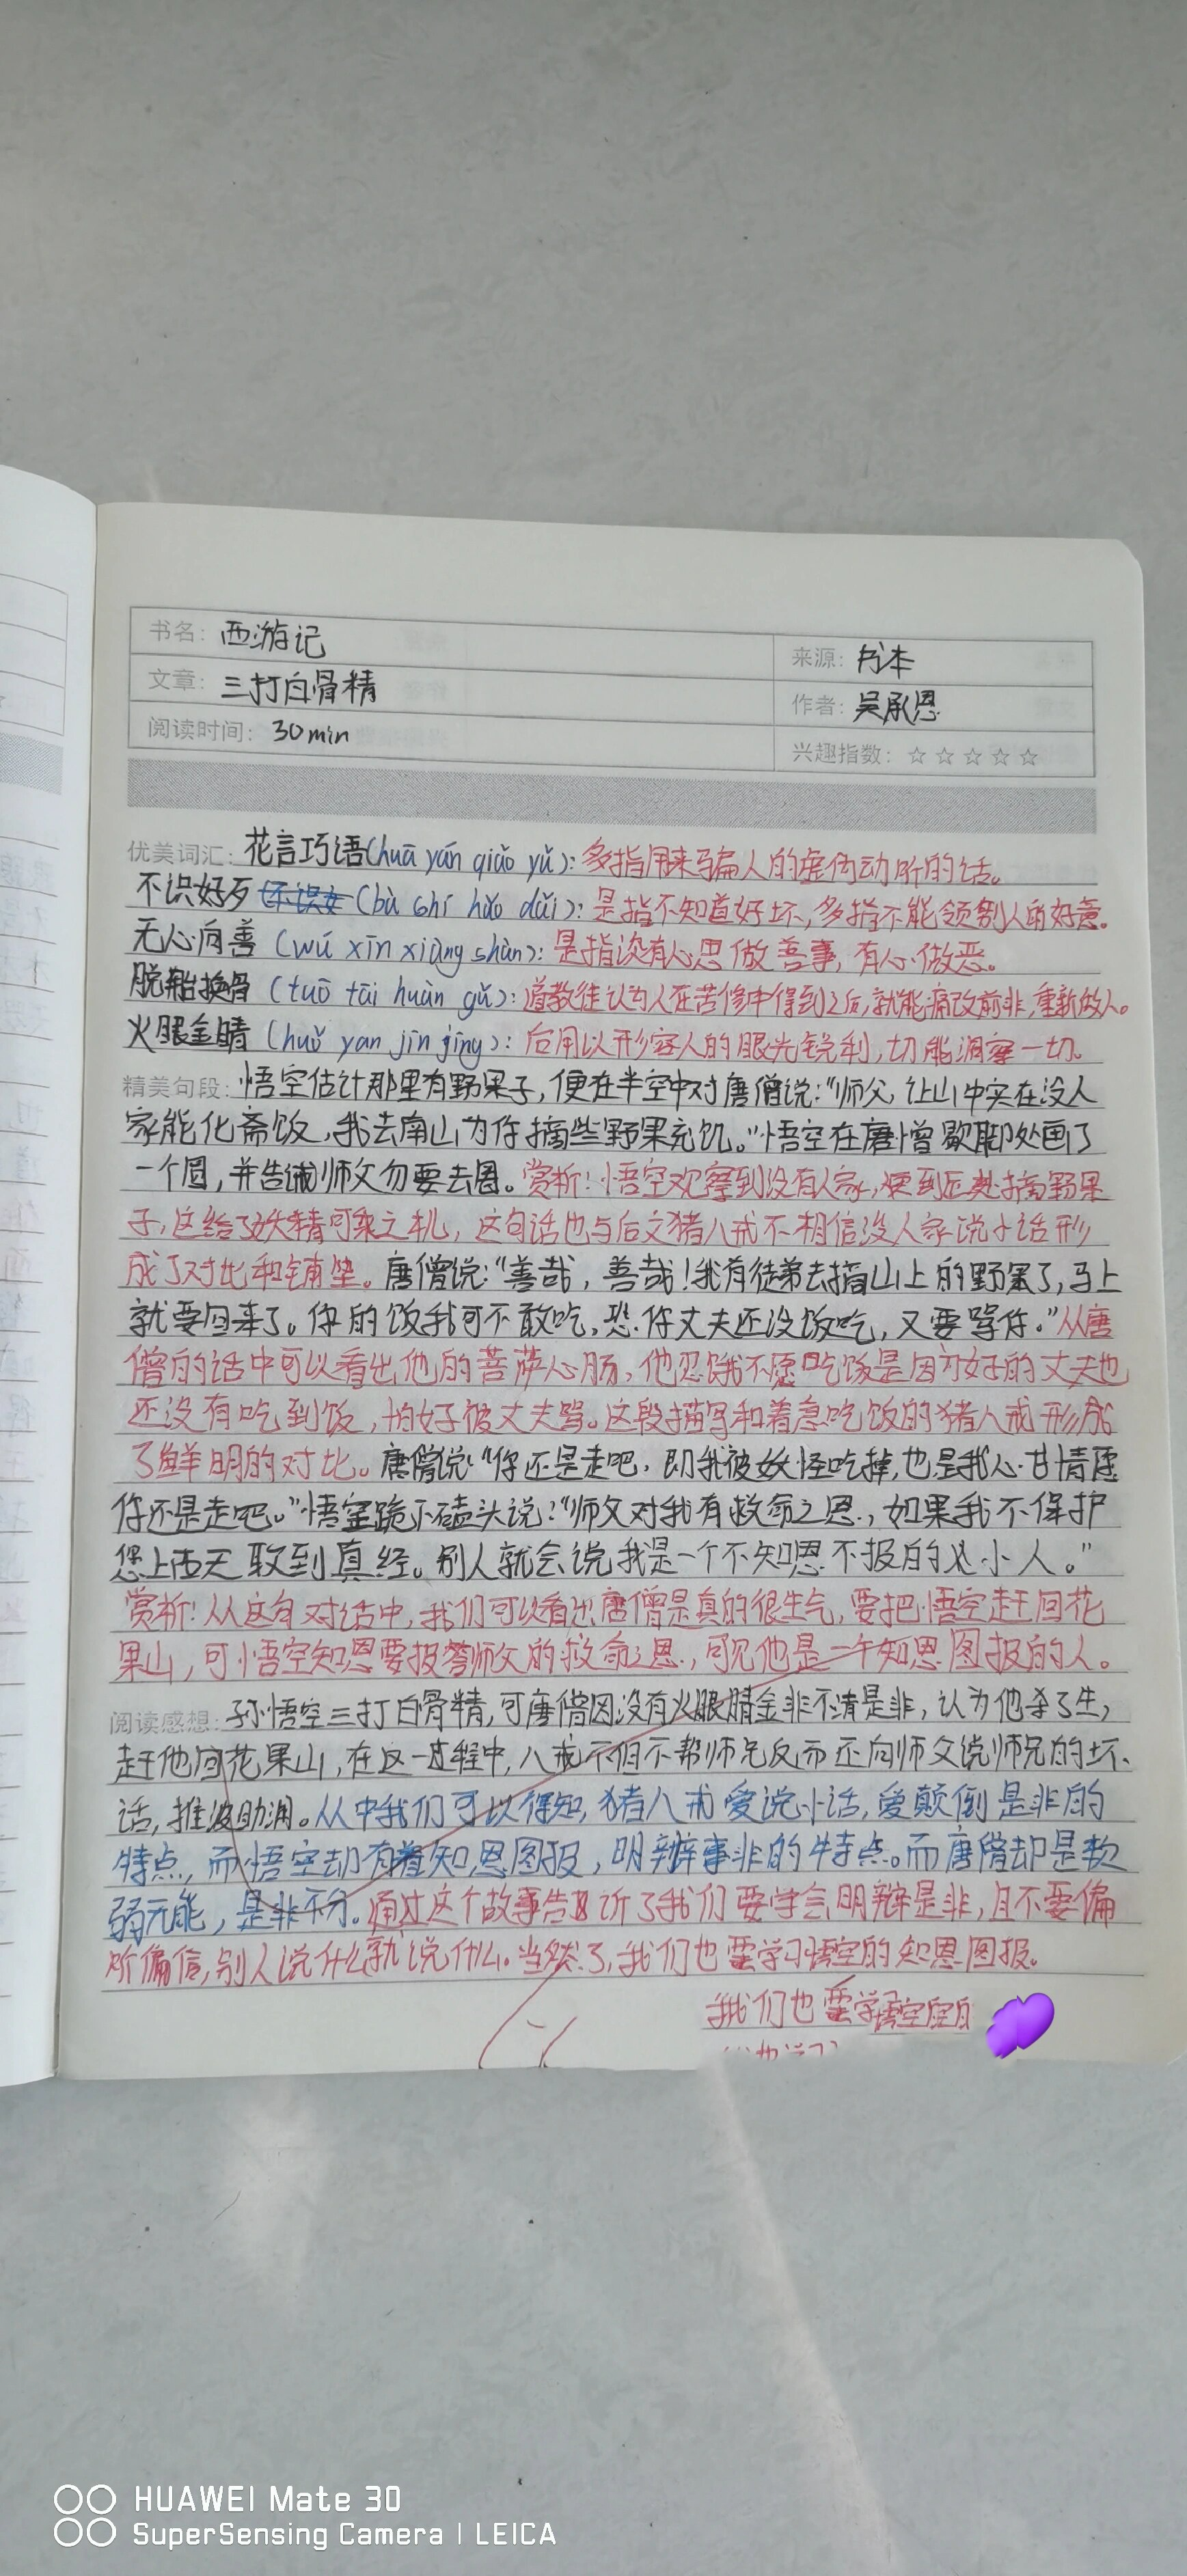 书名: 西游记
来源: 书本
文章: 三打白骨精
作者: 吴承恩
阅读时间: 30min
兴趣指数: ☆☆☆☆☆
优美词汇: 花言巧语(huā yán qiǎo yǔ): 多指用来骗人的虚伪动听的话。
不识好歹 (bù shí hǎo dǎi): 是指不知道好坏,多指不能领别人的好意。
无心向善 (wú xīn xiàng shàn): 是指没有心思做善事,有心做恶。
脱胎换骨 (tuō tāi huàn gǔ): 道教徒认为人在苦修中得到之后,就能痛改前非,重新做人。
火眼金睛 (huǒ yan jīn jīng): 后用以形容人的眼光锐利,切能洞察一切。
精美句段: 悟空估计那里有野果子,便在半空中对唐僧说:“师父,让山中实在没人
家能化斋饭,我去南山为你摘些野果充饥。”悟空在唐僧歇脚处画了
一个圆,并告诫师父勿要去圈。赏析:悟空观察到没有人家,便到匠处摘野果
子,这给了妖精可乘之机,这句话也与后文猪八戒不相信没人家说小话形
成了对比和铺垫。唐僧说:“善哉,善哉!我有徒弟去摘山上的野果了,马上
就要回来了。你的饭我可不敢吃,恐你丈夫还没饭吃,又要骂你。”从唐
僧的话中可以看出他的菩萨心肠,他忍饿不愿吃饭是因为好的丈夫也
还没有吃到饭,怕好被丈夫骂。这段描写和着急吃饭的猪八戒形成
了鲜明的对比。唐僧说:“你还是走吧,即我被妖怪吃掉,也是我心甘情愿
你还是走吧。”悟空跪下磕头说:“师父对我有救命之恩,如果我不保护
您上西天取到真经。别人就会说我是一个不知恩不报的小人。”
赏析:从这句对话中,我们可以看出唐僧是真的很生气,要把悟空赶回花
果山,可悟空知恩要报答师父的救命之恩,可见他是一个知恩图报的人。
阅读感想: 孙悟空三打白骨精,可唐僧因没有火眼睛金非不清是非,认为他杀了生,
赶他回花果山,在这一过程中,八戒不但不帮师兄反而还向师父说师兄的坏
话,推波助澜。从中我们可以得知,猪八戒爱说小话,爱颠倒是非的
特点,而悟空却有着知恩图报,明辨事非的特点。而唐僧却是软
弱无能,是非不分。通过这个故事告诉了我们要学会明辩是非,且不要偏
听偏信,别人说什么就说什么。当然了,我们也要学习悟空的知恩图报。
我们也要学悟空
HUAWEI Mate 30
SuperSensing Camera | LEICA